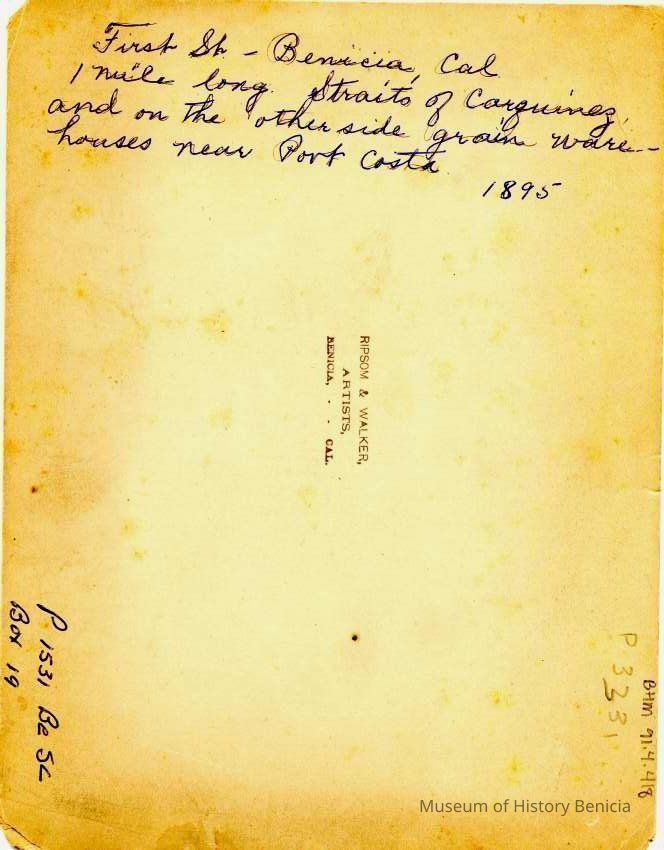 First St - Benicia, Cal
1 mile long. Straits of Carquinez,
and on the other side grain ware-
houses near Port Costa
1895
RIPSOM & WALKER,
ARTISTS,
BENICIA, - - CAL.
P 1531 Be SC
Box 19
P 3331
BHM 91.4.418
Museum of History Benicia